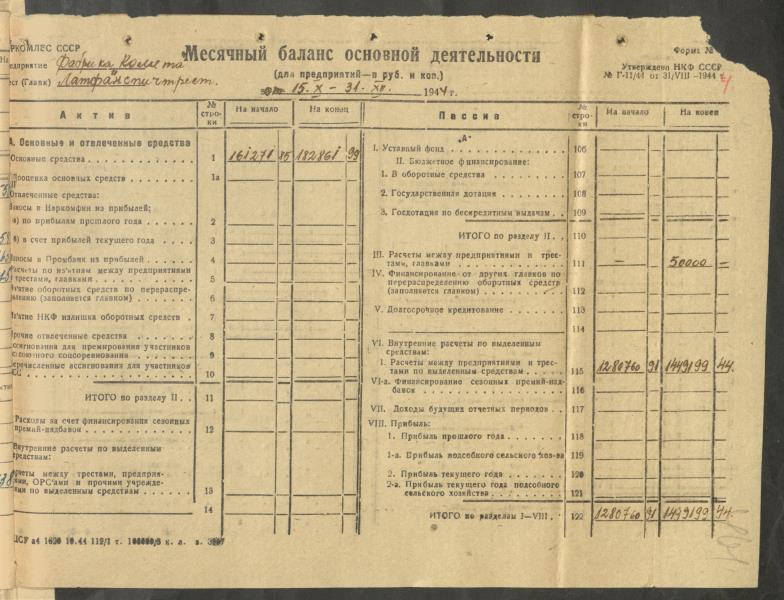 РКОМЛЕС СССР
Форма №
едприятие Фабрика Комета
Месячный баланс основной деятельности
Утверждена НКФ СССР
ест (Главк) Латфанспичтрест.
(для предприятий—в руб. и коп.)
№ Г-11/44 от 31/VIII -1944
15.X – 31.XII. 1944 г.
Актив № стро-ки На начало На конец
Пассив № стро-ки На начало На конец
А. Основные и отвлеченные средства
Основные средства 1 161271 85 182861 99
Переоценка основных средств 1а
Отвлеченные средства:
Взносы в Наркомфин из прибылей:
а) по прибылям прошлого года 2
б) в счет прибылей текущего года 3
Взносы в Промбанк из прибылей 4
Расчеты по из'ятиям между предприятиями
и трестами, главками 5
Из'ятие оборотных средств по перераспре-
делению (заполняется главком) 6
Из'ятие НКФ излишка оборотных средств 7
Прочие отвлеченные средства 8
Ассигнования для премирования участников
социалистического соревнования 9
Перечисленные ассигнования для участников
10
ИТОГО по разделу II 11
Расходы за счет финансирования сезонных
премий-надбавок 12
Внутренние расчеты по выделенным
средствам:
Расчеты между трестами, предприя-
тиями, ОРС'ами и прочими учрежде-
ниями по выделенным средствам 13
14
„А“
I. Уставный фонд 106
II. Бюджетное финансирование:
1. В оборотные средства 107
2. Государственная дотация 108
3. Госдотация по бескредитным выдачам 109
ИТОГО по разделу II 110
III. Расчеты между предприятиями и трес-
тами, главками 111 — 50000 —
IV. Финансирование от других главков по
перераспределению оборотных средств
(заполняется главком) 112
V. Долгосрочное кредитование 113
114
VI. Внутренние расчеты по выделенным
средствам:
1. Расчеты между предприятиями и трес-
тами по выделенным средствам 115 1280760 91 1449199 44.
VI-а. Финансирование сезонных премий-над-
бавок 116
VII. Доходы будущих отчетных периодов 117
VIII. Прибыль:
1. Прибыль прошлого года 118
1-а. Прибыль подсобного сельского хоз-ва 119
2. Прибыль текущего года 120
2-а. Прибыль текущего года подсобного
сельского хозяйства 121
ИТОГО по разделам I—VIII 122 1280760 91 1449199 44.
ЦСУ а4 1620 10.44 112/1 т.